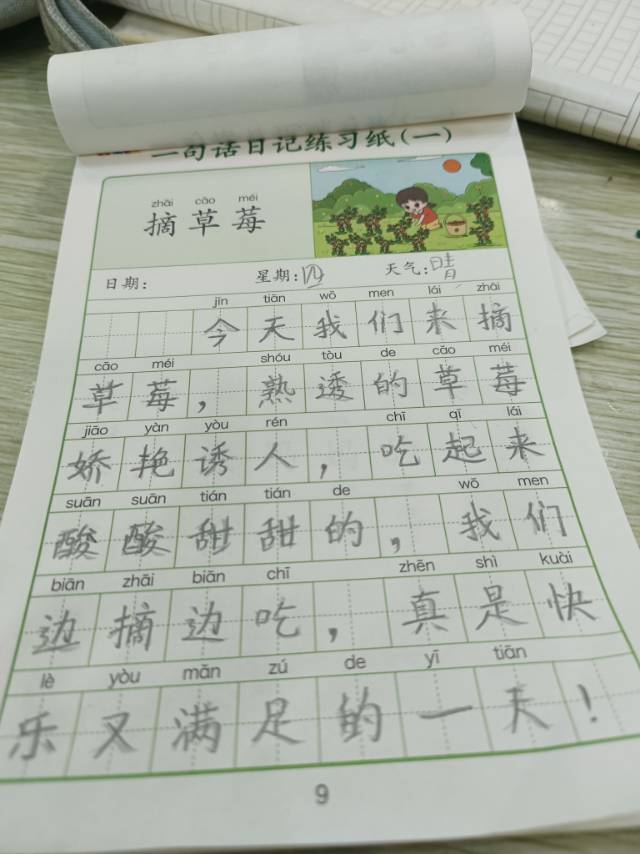 一句话日记练习纸(一)
zhāi cǎo méi
摘草莓
日期: 星期:四 天气:晴
jīn tiān wǒ men lái zhāi
今天我们来摘
cǎo méi shóu tòu de cǎo méi
草莓，熟透的草莓
jiāo yàn yòu rén chī qǐ lái
娇艳诱人，吃起来
suān suān tián tián de wǒ men
酸酸甜甜的，我们
biān zhāi biān chī zhēn shì kuài
边摘边吃，真是快
lè yòu mǎn zú de yī tiān
乐又满足的一天！
9